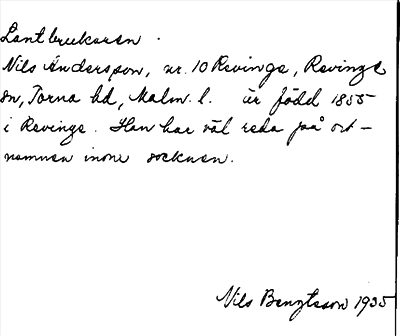 Lantbrukaren.
Nils Andersson, nr. 10 Revinge, Revinge
sn, Torna hd, Malm. l. är född 1855
i Revinge. Han har väl reda på ort-
namnen inom socknen.
Nils Bengtsson 1935